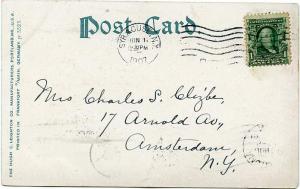 Post Card.
THE HUGH C. LEIGHTON CO., MANUFACTURERS, PORTLAND, ME., U.S.A.
PRINTED IN FRANKFORT MAIN, GERMANY
SYRACUSE, N.Y.
JUN 1
PM
1907
Mrs Charles S.
17 Arnold Av,
Amsterdam,
N.Y.